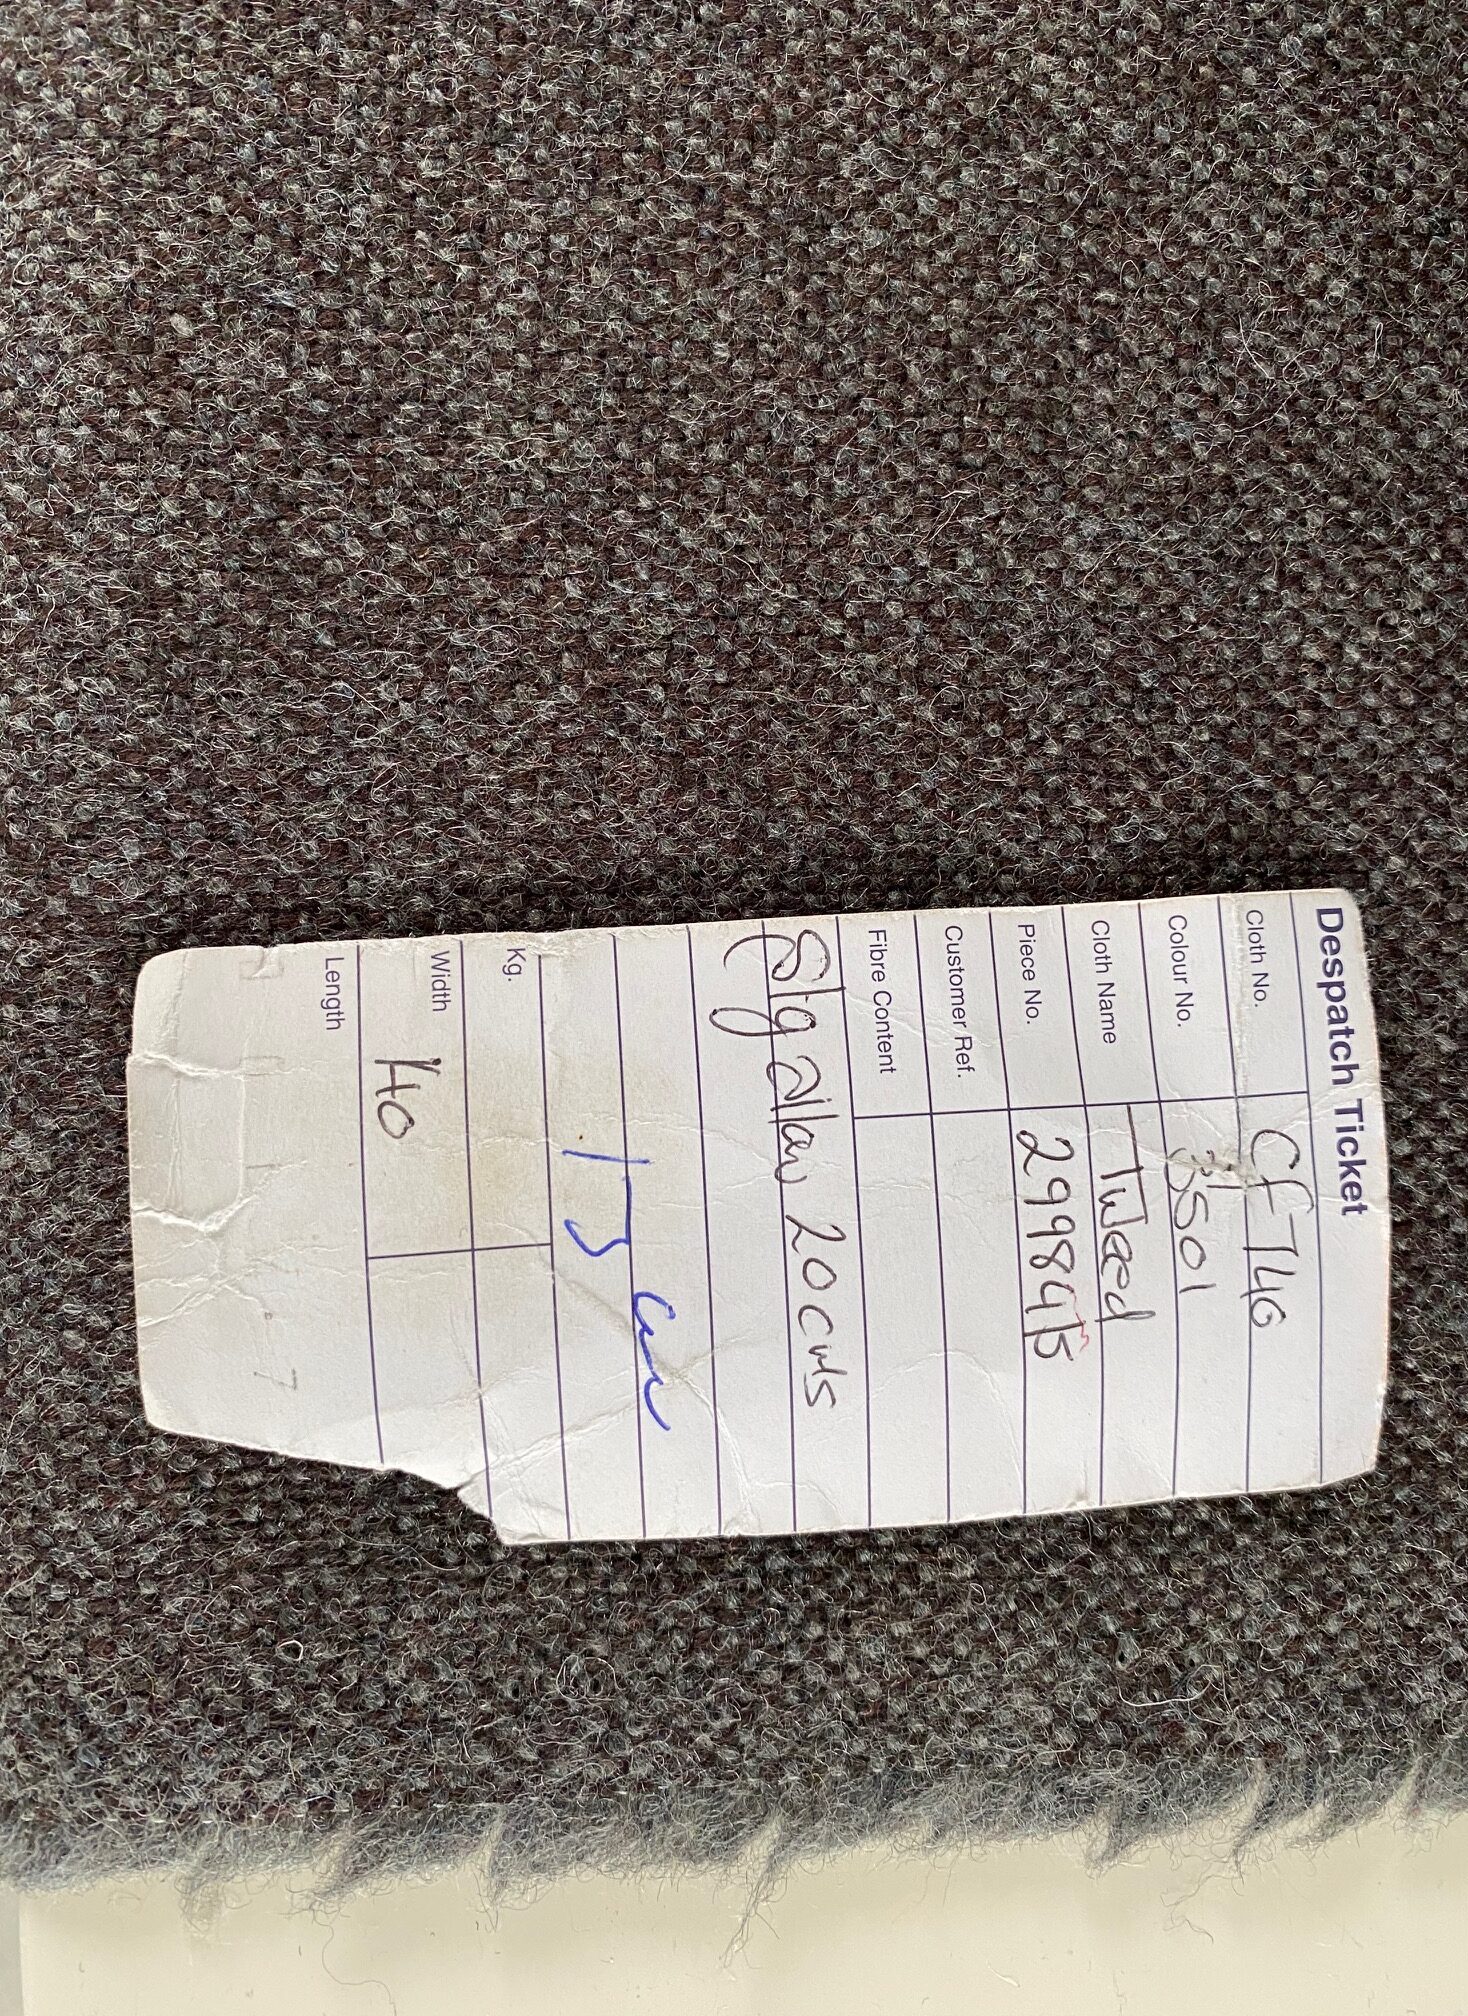 Despatch Ticket
Cloth No. CF740
Colour No. 3501
Cloth Name Tweed
Piece No. 29984/5
Customer Ref.
Fibre Content
Slg allow 20cms
Kg.
Width 140
Length